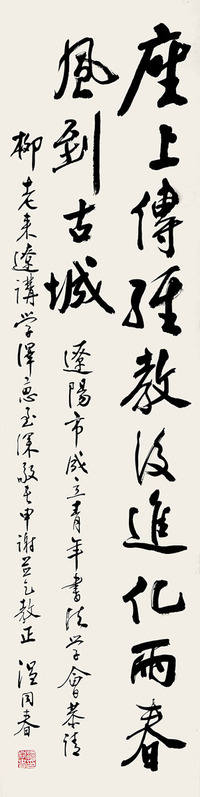 座上傳經教後進化雨春
風到古城
遼陽市成立青年書法學會恭請
柳老来遼講学澤惠至深敬書申謝並乞教正 温同春